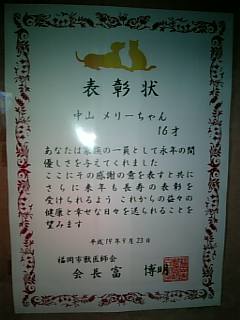 表彰状
中山 メリーちゃん
16才
あなたは家族の一員として永年の間
優しさを与えてくれました
ここにその感謝の意を表すと共に
さらに来年も長寿の表彰を
受けられるよう これからの益々の
健康と幸せな日々を送られることを
望みます
平成19年9月23日
福岡市獣医師会
会長 富 博明